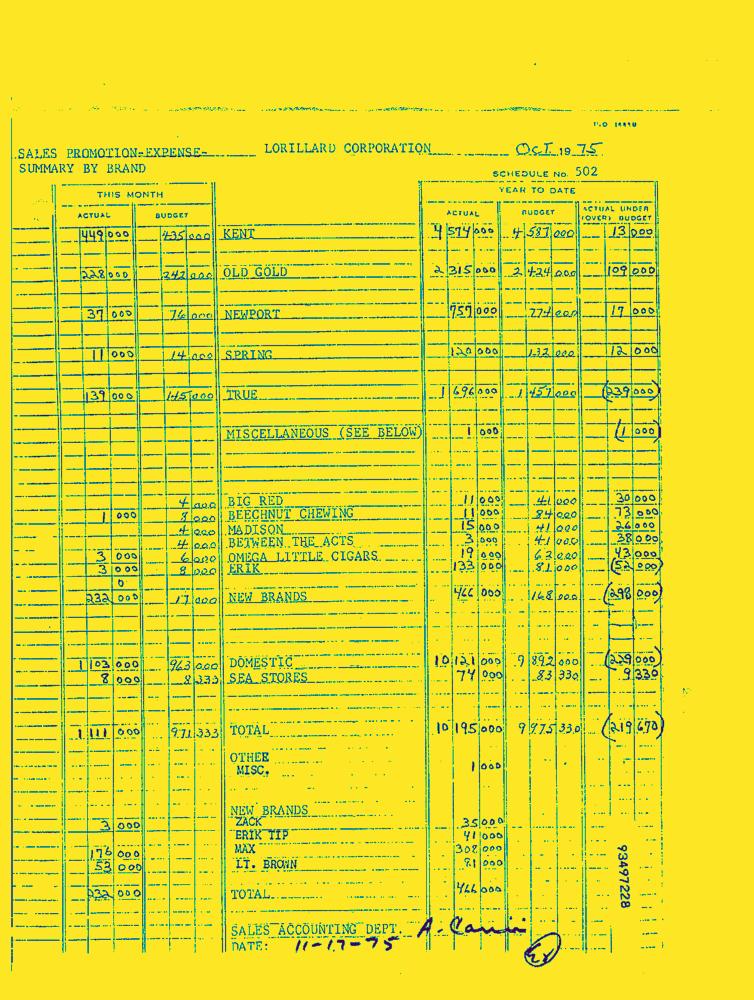 SALES PROMOTION-EXPENSE- LORILLARD CORPORATION OCT. 19 75
SUMMARY BY BRAND SCHEDULE No. 502
THIS MONTH YEAR TO DATE
ACTUAL BUDGET ACTUAL BUDGET ACTUAL UNDER (OVER) BUDGET
449 000 435 000 KENT 4 574 000 4 587 000 13 000
228 000 242 000 OLD GOLD 2 315 000 2 424 000 109 000
37 000 76 000 NEWPORT 757 000 774 000 17 000
11 000 14 000 SPRING 120 000 132 000 12 000
139 000 145 000 TRUE 1 696 000 1 457 000 (239 000)
MISCELLANEOUS (SEE BELOW) 1 000 (1 000)
4 000 BIG RED 11 000 41 000 30 000
1 000 8 000 BEECHNUT CHEWING 11 000 84 000 73 000
4 000 MADISON 15 000 41 000 26 000
4 000 BETWEEN THE ACTS 3 000 41 000 38 000
3 000 6 000 OMEGA LITTLE CIGARS 19 000 62 000 43 000
3 000 8 000 ERIK 133 000 81 000 (52 000)
0
232 000 17 000 NEW BRANDS 466 000 168 000 (298 000)
1 103 000 963 000 DOMESTIC 10 121 000 9 892 000 (229 000)
8 000 8 333 SEA STORES 74 000 83 330 9 330
1 111 000 971 333 TOTAL 10 195 000 9 975 330 (219 670)
OTHER
MISC. 1 000
NEW BRANDS
3 000 ZACK 35 000
ERIK TIP 41 000
176 000 MAX 308 000
53 000 LT. BROWN 81 000
232 000 TOTAL 466 000
93497228
SALES ACCOUNTING DEPT. A.
DATE: 11-17-75